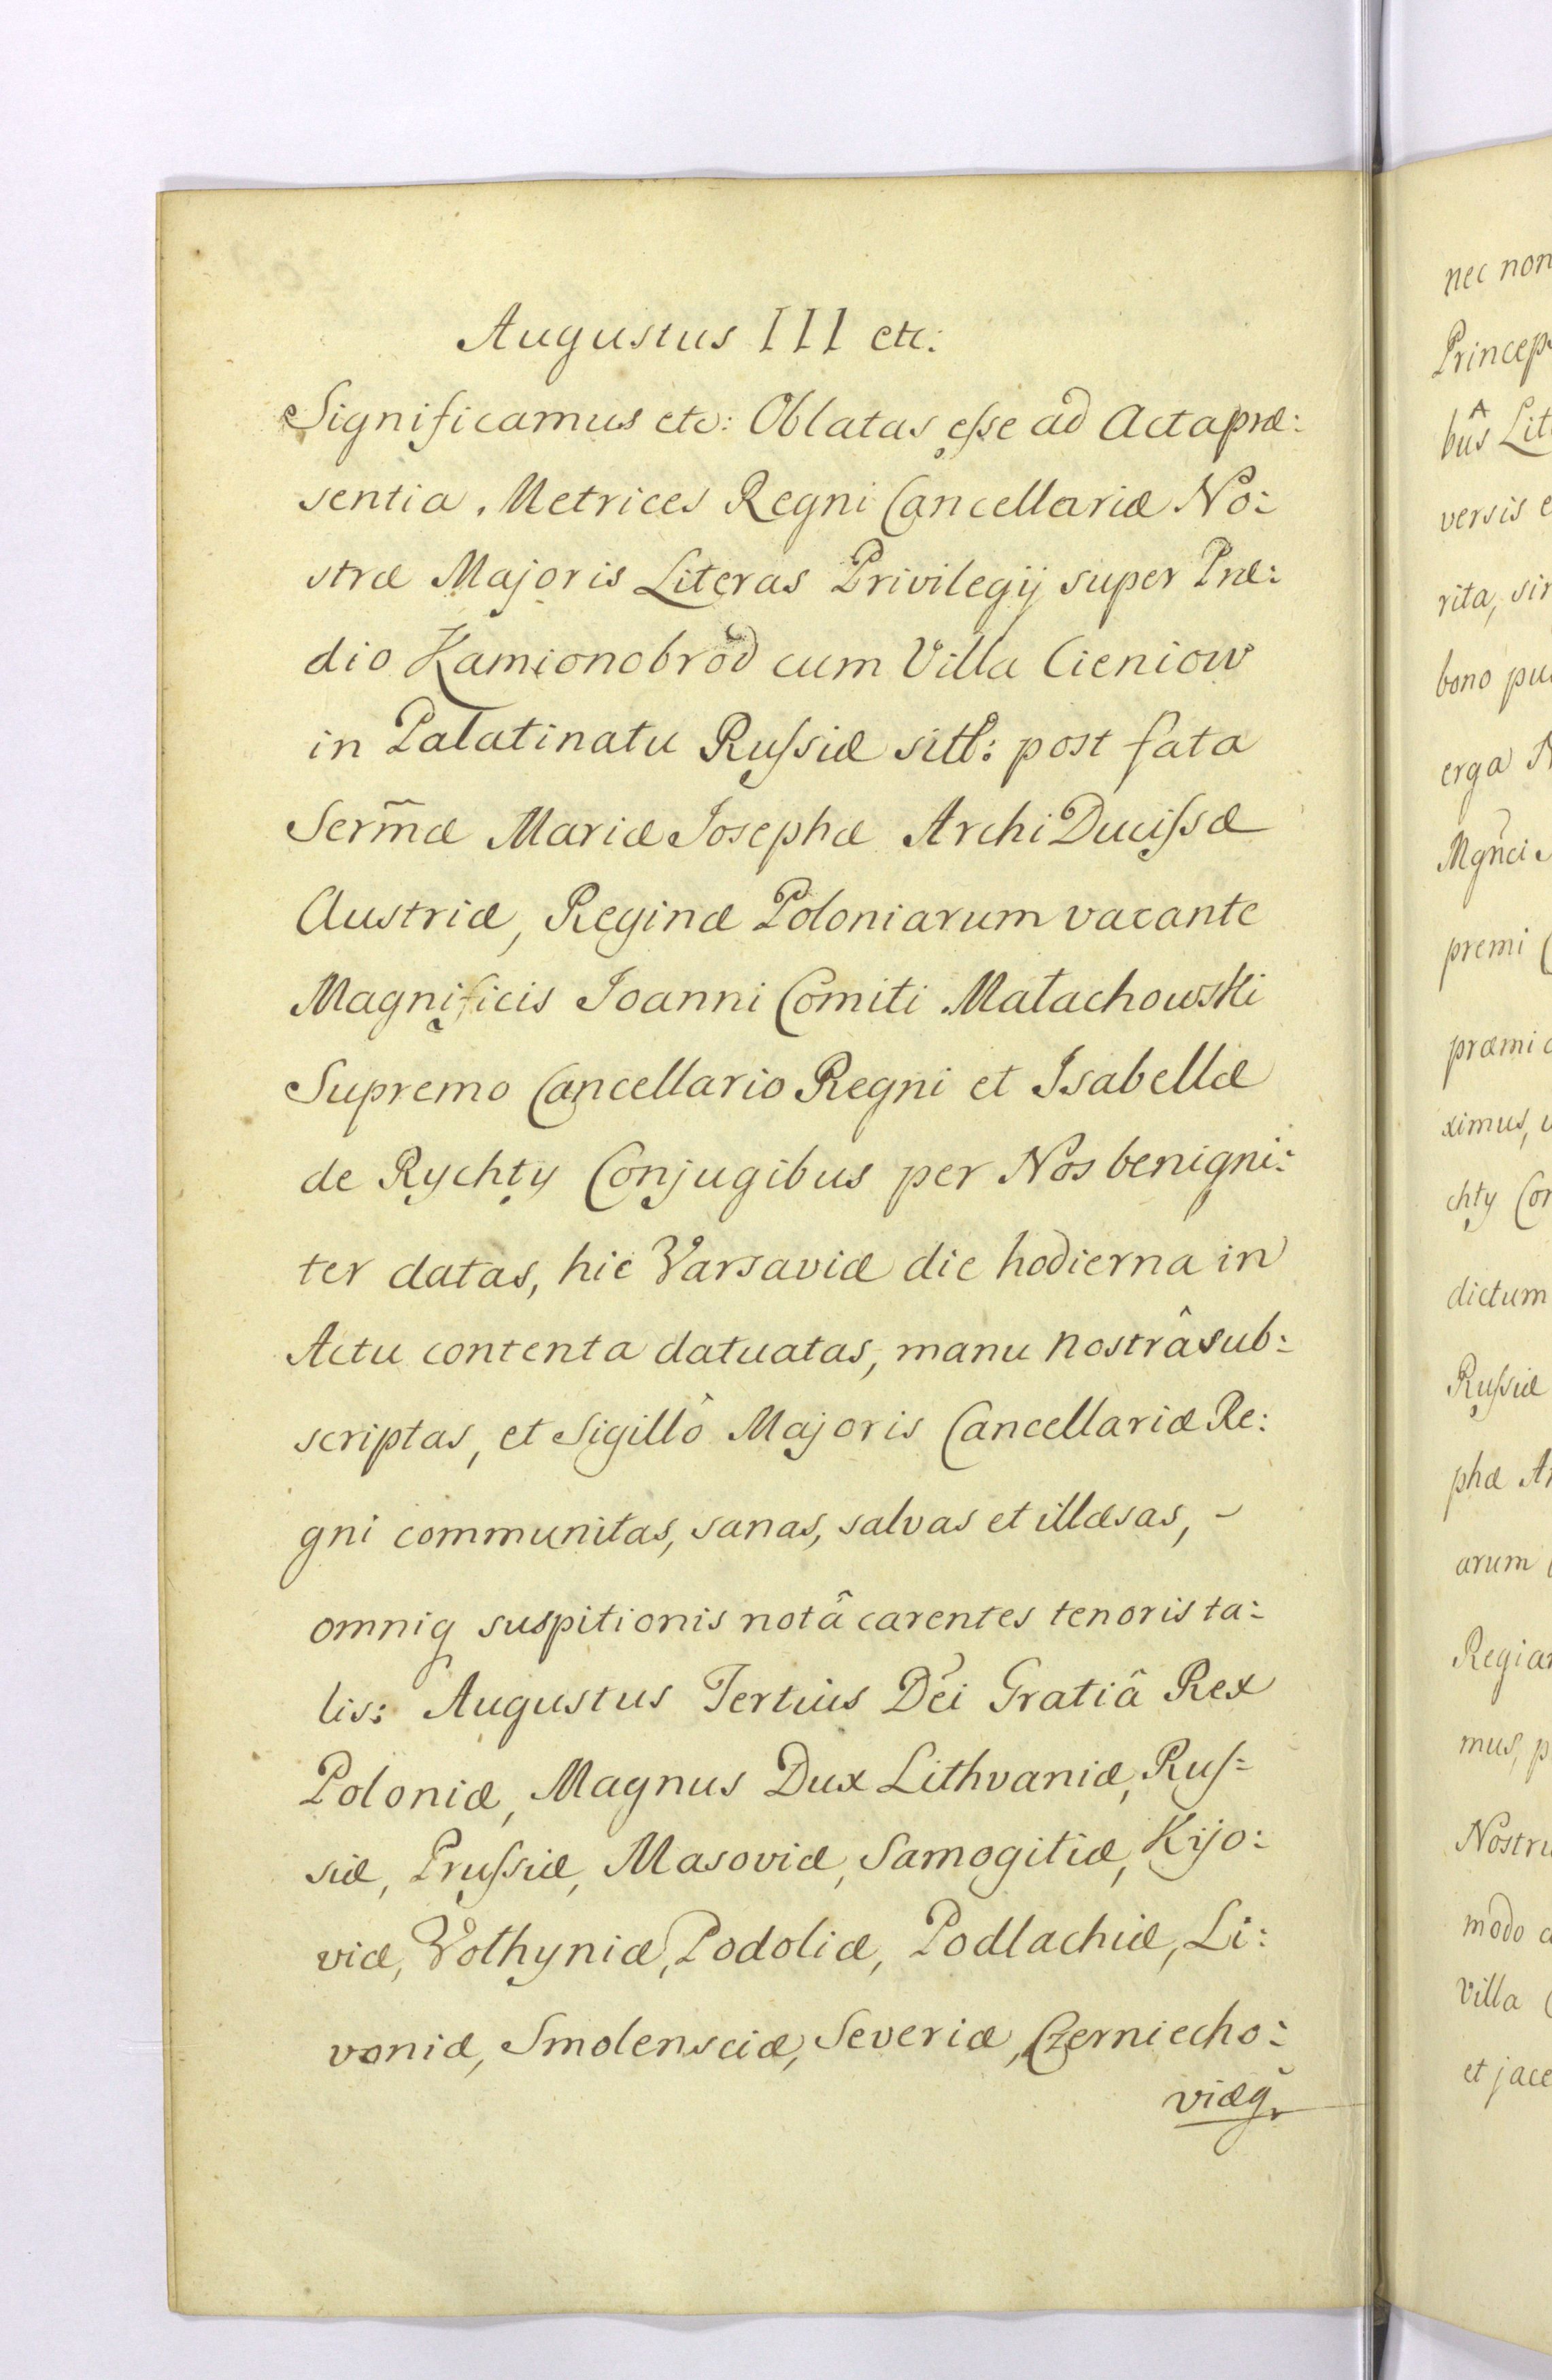 Augustus III etc:
Significamus etc: Oblatas eſse ad Acta præ:
sentia Metrices Regni Cancellariæ No:
stræ Majoris Literas Privilegij super Præ:
dio Kamionobrod cum Villa Cieniow
in Palatinatu Ruſsiæ sitt: post fata
Serm̃æ Mariæ Josephæ Archi Duciſsæ
Austriæ, Reginæ Poloniarum vacante
Magnificis Joanni Comiti Małachowski
Supremo Cancellario Regni et Isabellæ
de Rychty Conjugibus per Nos benigni:
ter datas, hic Varsaviæ die hodierna in
Actu contenta datuatas, manu nostrâ sub:
scriptas, et Sigillô Majoris Cancellariæ Re:
gni communitas, sanas, salvas et illæsas, -
omniq suspitionis notâ carentes tenoris ta:
lis: Augustus Tertius Dei Gratiâ Rex
Poloniæ, Magnus Dux Lithvaniæ, Ruſ:
siæ, Pruſsiæ, Masoviæ, Samogitiæ, Kijo:
viæ, Volhyniæ, Podoliæ, Podlachiæ, Li:
voniæ, Smolensciæ, Severiæ, Czerniecho:
viæq
nec non
Princep
bûs Lit
versis e
rita, sin
bono pu
erga N
Mgñci
premi C
præmi
ximus, u
chty Con
dictum
Ruſsiæ
phæ Ar
arum
Regia
mus, p
Nostr
modo
villa
et jace